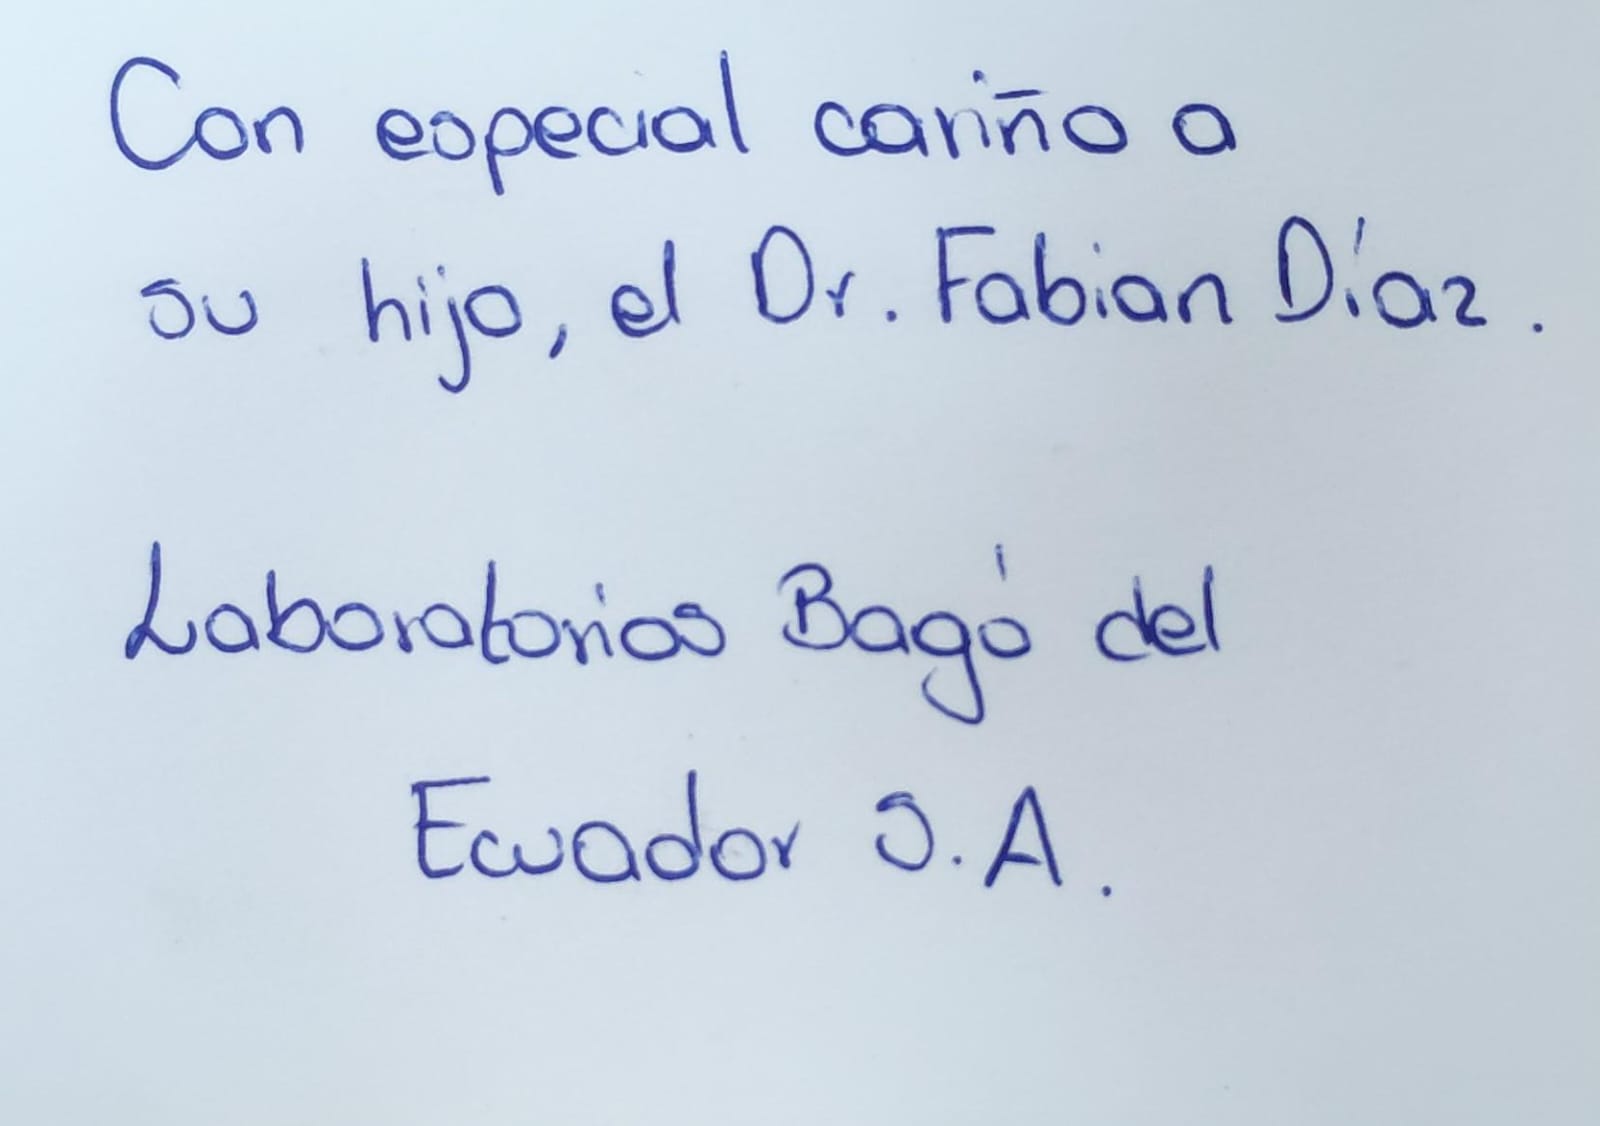 Con especial cariño a
su hijo, el Dr. Fabian Díaz.
Laboratorios Bagó del
Ecuador S.A.